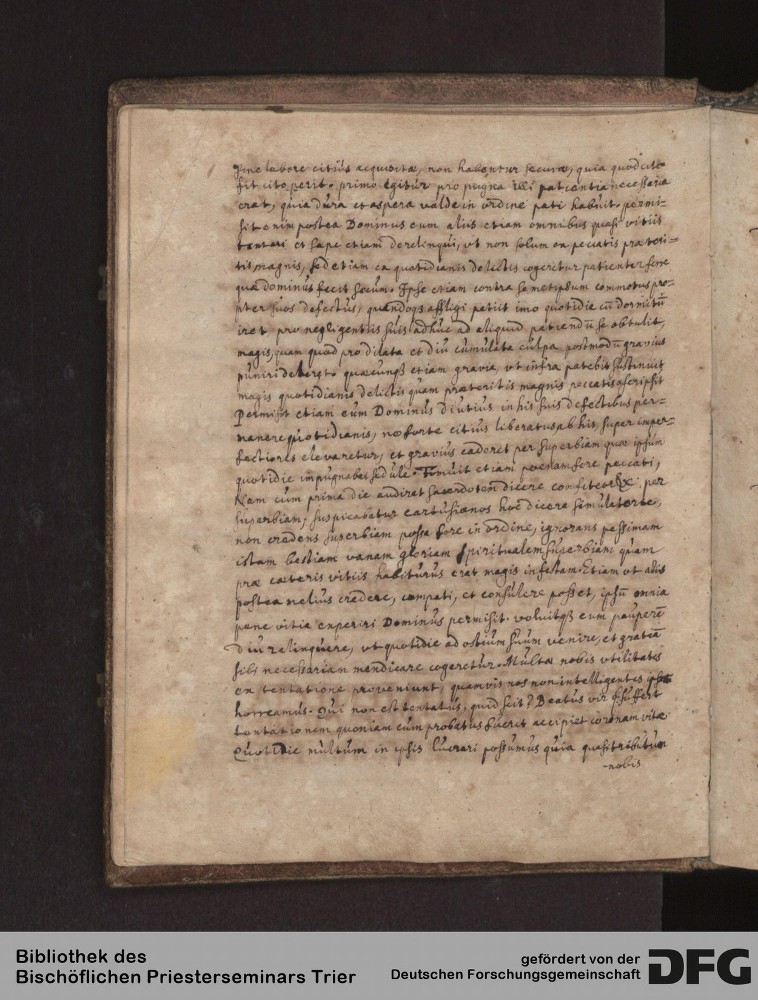 sine labore citiùs acquisitæ, non habentur securæ, quia quod cito
fit cito perit. primo igitùr pro pugna illi patientia necessaria
erat, quia dura et aspera valde in ordine pati habuit, permi-
sit enim postea Dominus eum aliis etiam omnibus quasi vitiis
tentari et sæpe etiam derelinqui, vt non solum ex peccatis præteri-
tis magnis, sed etiam ex quotidianis delictis cogeretur patienter ferre
quæ dominus fecit secum. Ipse etiam contra semetipsum commotus pro-
pter suos defectus, quandoqꝫ affligi petiit imo quotidie cū dormitū
iret pro negligentiis suis adhuc ad aliquid patiendū se obtulit,
magis, quam quod pro dilata et diu cumulata culpa postmodū gravius
puniri deberet. quæcunqꝫ etiam gravia, vt infra patebit sustinuit
magis quotidianis delictis quam præteritis magnis peccatis ascripsit
Permisit etiam eum Dominus diutius in his suis defectibus per-
manere quotidianis, ne forte citius liberatus ab his, super imper-
fectiores elevaretur, et gravius caderet per superbiam quæ ipsum
quotidie impugnabat sedule. Timuit etiam poenam fere peccati,
Nam cum prima die audiret sacerdotem dicere confiteor per
superbiam, suspicabatur cartusianos hoc dicere simulatorie,
non credens superbiam posse fore in ordine, ignorans pessimam
istam bestiam vanam gloriam spiritualem superbiam quam
præ cæteris vitiis habiturus erat magis infestam. Etiam vt aliis
postea melius credere, compati, et consulere posset, ipsū omnia
pene vitia experiri Dominus permisit. voluitqꝫ eum pauperē
diu relinquere, vt quotidie ad ostium suum venire, et gratiā
sibi necessariam mendicare cogeretur. Multæ nobis vtilitates
ex tentatione proveniunt, quamvis nos non intelligentes
horreamus. Qui non est tentatus, quid scit? Beatus vir qui suffert
tentationem quoniam cum probatus fuerit accipiet coronam vitæ
Quotidie multum in ipsis lucrari possumus quia quasi tributum
-nobis
Bibliothek des
Bischöflichen Priesterseminars Trier
gefördert von der
Deutschen Forschungsgemeinschaft
DFG